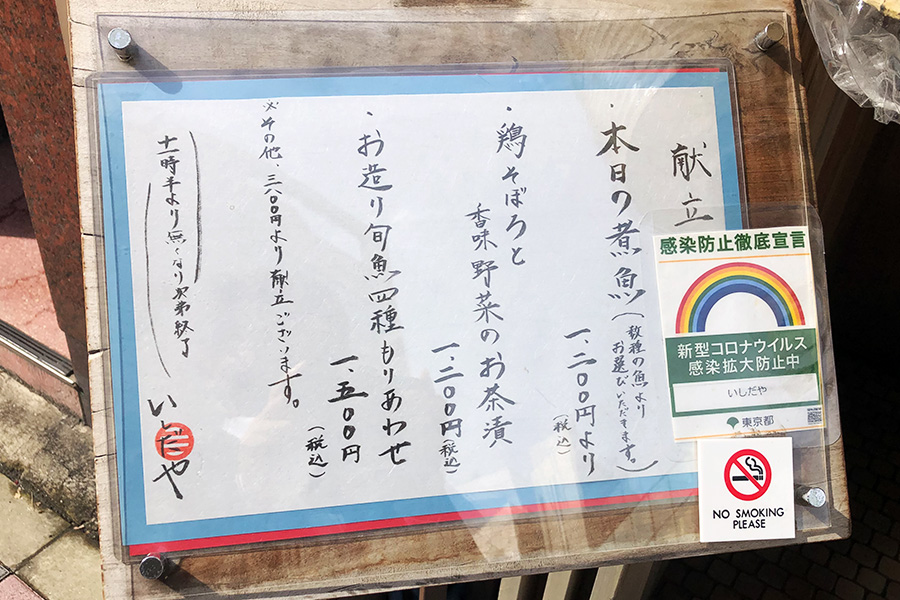 献立
・本日の煮魚
(数種の魚より
お選びいただきます。)
一、二〇〇円より
(税込)
・鶏そぼろと
香味野菜のお茶漬
一、二〇〇円
(税込)
・お造り旬魚四種もりあわせ
一、五〇〇円
(税込)
※その他、三八〇〇円より献立ございます。
十一時半より無くなり次第終了
いしだや
感染防止徹底宣言
新型コロナウイルス
感染拡大防止中
いしだや
東京都
NO SMOKING
PLEASE